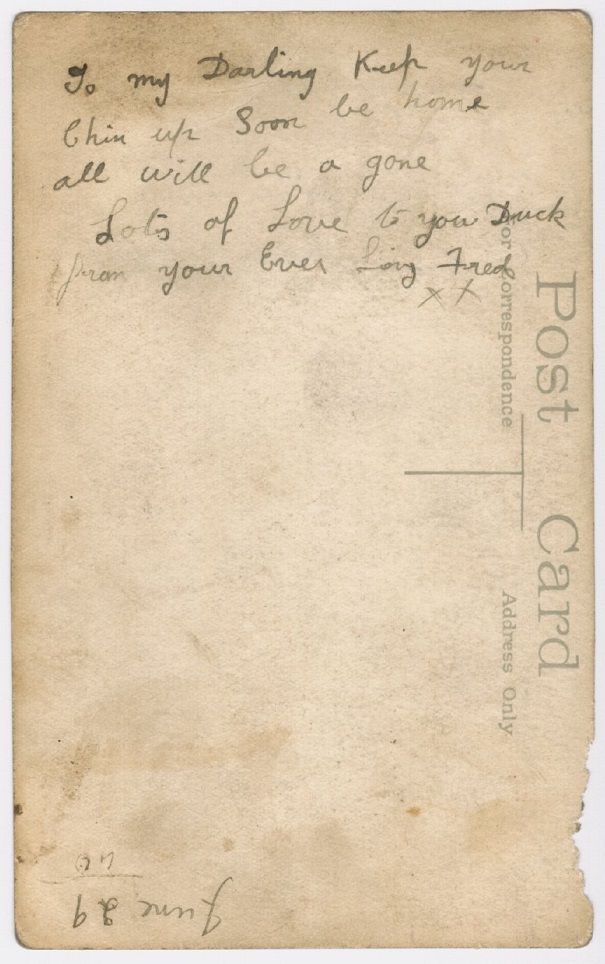 To my Darling Keep your
Chin up Soon be home
all will be a gone
Lots of Love to you Duck
from your Ever Loving Fred
x x
Post Card
For Correspondence
Address Only
June 29